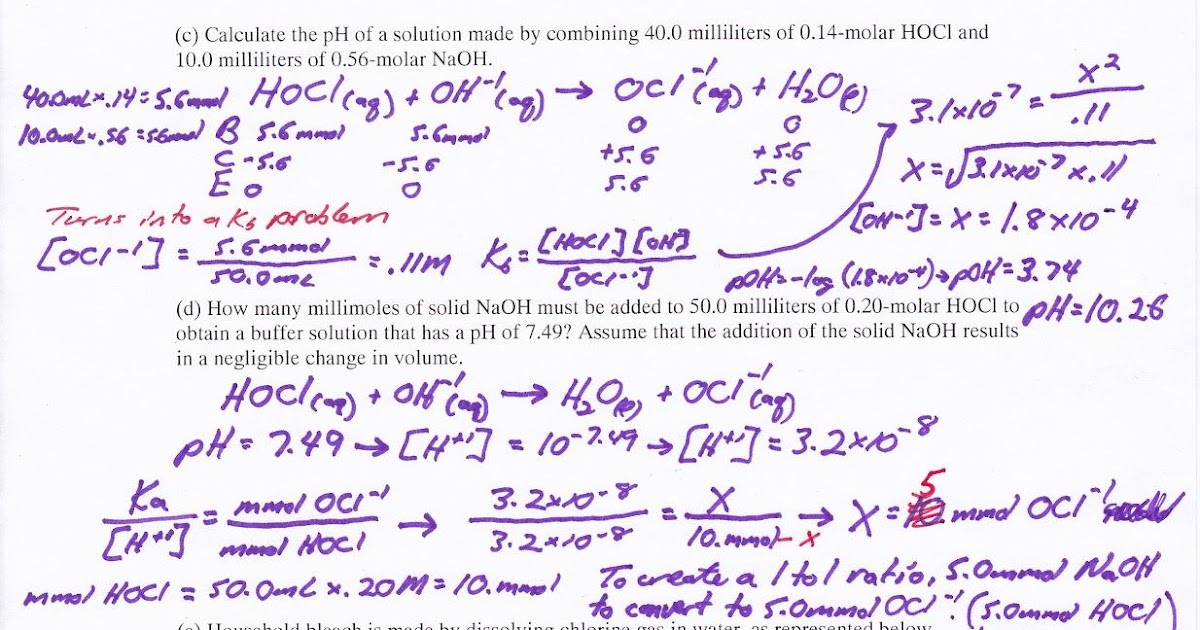 (c) Calculate the pH of a solution made by combining 40.0 milliliters of 0.14-molar HOCl and
10.0 milliliters of 0.56-molar NaOH.
40.0mL×.14=5.6mmol HOCl(aq) + OH⁻¹(aq) → OCl⁻¹(aq) + H₂O(l)
10.0mL×.56=56mmol B 5.6mmol 5.6mmol 0 0
C -5.6 -5.6 +5.6 +5.6
E 0 0 5.6 5.6
3.1×10⁻⁷ = x²/.11
X=√3.1×10⁻⁷×.11
[OH⁻¹]=X=1.8×10⁻⁴
Turns into a Kb problem
[OCl-1] = 5.6mmol/50.0mL = .11M Kb = [HOCl][OH]/[OCl-1]
pOH=-log(1.8×10⁻⁴)→pOH=3.74
pH=10.26
(d) How many millimoles of solid NaOH must be added to 50.0 milliliters of 0.20-molar HOCl to
obtain a buffer solution that has a pH of 7.49? Assume that the addition of the solid NaOH results
in a negligible change in volume.
HOCl(aq) + OH⁻¹(aq) → H₂O(l) + OCl⁻¹(aq)
pH=7.49→[H⁺¹] = 10⁻⁷·⁴⁹→[H⁺¹]=3.2×10⁻⁸
Ka/[H⁺¹] = mmol OCl⁻¹/mmol HOCl → 3.2×10⁻⁸/3.2×10⁻⁸ = X/10.mmol-x → X=5 mmol OCl⁻¹
mmol HOCl = 50.0mL×.20M=10.mmol
To create a 1 to 1 ratio, 5.0mmol NaOH
to convert to 5.0mmol OCl⁻¹ (5.0mmol HOCl)
(e) Household bleach is made by dissolving chlorine gas in water, as represented below